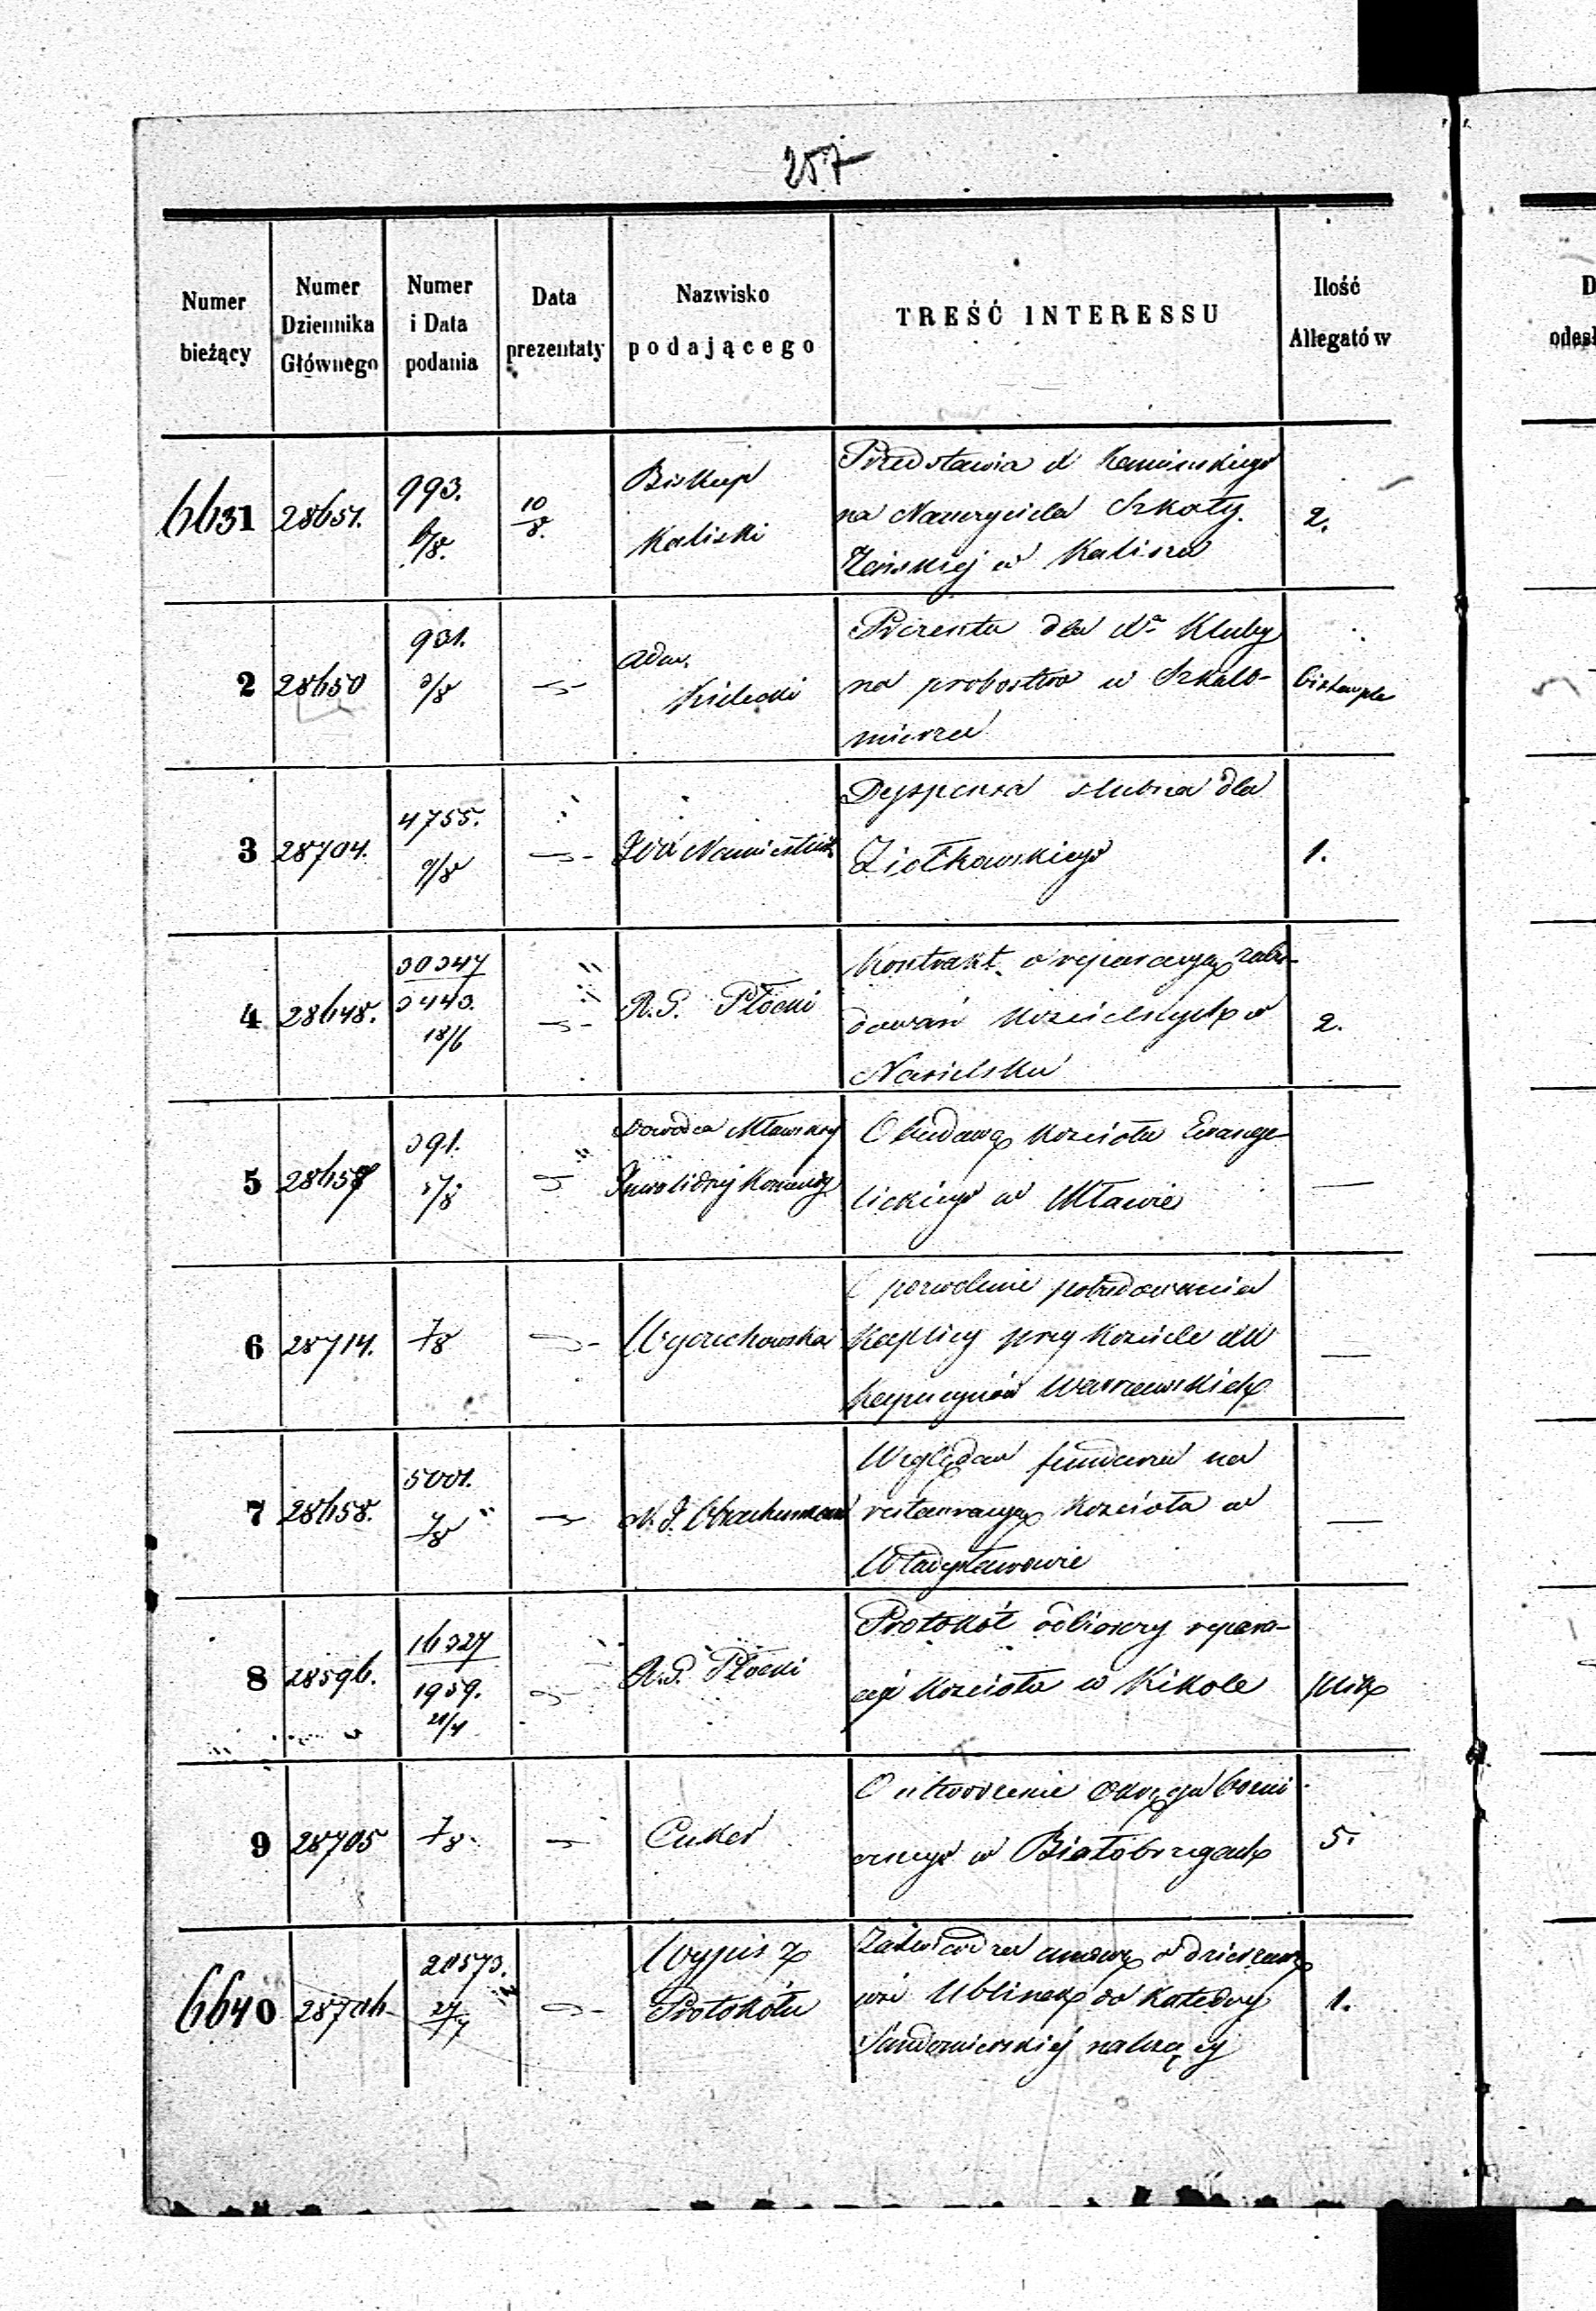 257
Numer bieżący
Numer Dziennika Głównego
Numer i Data podania
Data prezentaty
Nazwisko podającego
TREŚĆ INTERESSU
Ilość Allegatów
D
odes
6631 28651. 993. 6/8. 10/8. Biskup Kaliski
Przedstawia X Kamińskiego
na Nauczyciela Szkoły
Żeńskiej w Kaliszu
2.
2 28650 931. 3/8 Adm. Kielecki
Prezenta dla Xa Kluby
na probostwo w Skalb-
mierzu
3 28704. 4755. 9/8
Dyspensa ślubna dla
Ziołkowskiego
1.
4 28648. 30347 3443. 18/6 R. G. Płocki
Kontrakt o reparacyę zabu-
dowań Kościelnych w
Nasielsku
2.
5 391. 5/8 Dowódca Mławskiej
Inwalidnej Komendy
O budowę Kościoła Ewange-
lickiego w Mławie
—
6 28714. 7/8
O pozwolenie pobudowania
Kaplicy przy Kościele XX
Kapucynów Warszawskich
—
7 28658. 5001. 7/8
Względem funduszu na
restauracyę Kościoła w
Władysławowie
—
8 28596. 16327 1959. 21/4 R. G. Płocki
Protokół odbiorczy repara-
cyi Kościoła w Kikole
9 28705 7/8. Cukier
O utworzenie Okręgu bożni-
czego w Białobrzegach
5.
6640 28706 20573. 27/7 Wypis z
Protokółu
Zatwierdza umowę o dzierżawę
wsi Ublinek do Katedry
Sandomierskiej należącej
1.